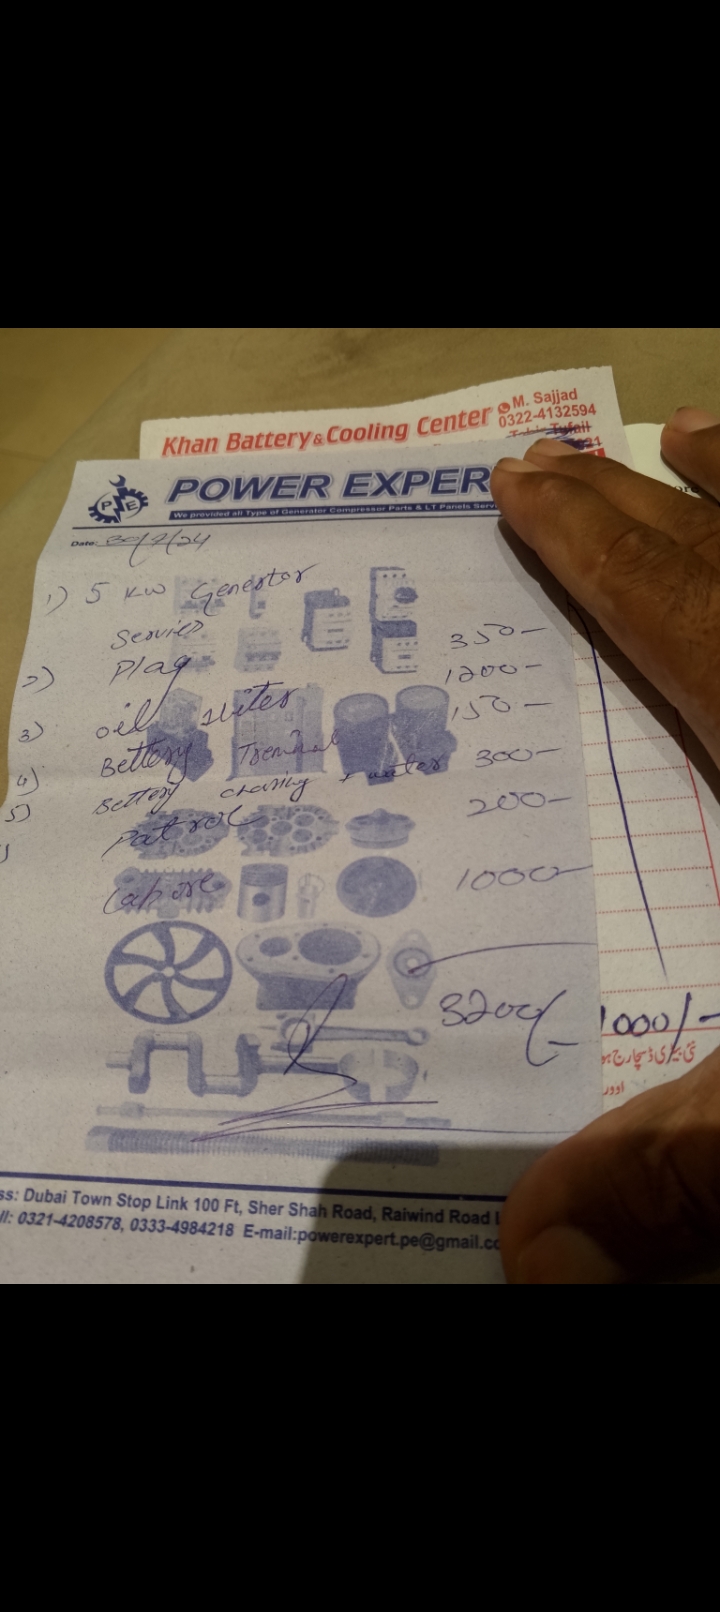 Khan Battery & Cooling Center
M. Sajjad
0322-4132594
POWER EXPER
We provided all Type of Generator Compressor Parts & LT Panels Servi
Date: 30/7/24
1) 5 KW Generstor
Servies
2) Plag 350-
3) oil 1 liter 1200-
4) Bettery Treminal 150-
5) Bettery charing + water 300-
Patrol 200-
Labore 1000-
3200/-
1000/-
نئی بیٹری ڈسچارج ہو
اوور
ss: Dubai Town Stop Link 100 Ft, Sher Shah Road, Raiwind Road
ll: 0321-4208578, 0333-4984218 E-mail:powerexpert.pe@gmail.co